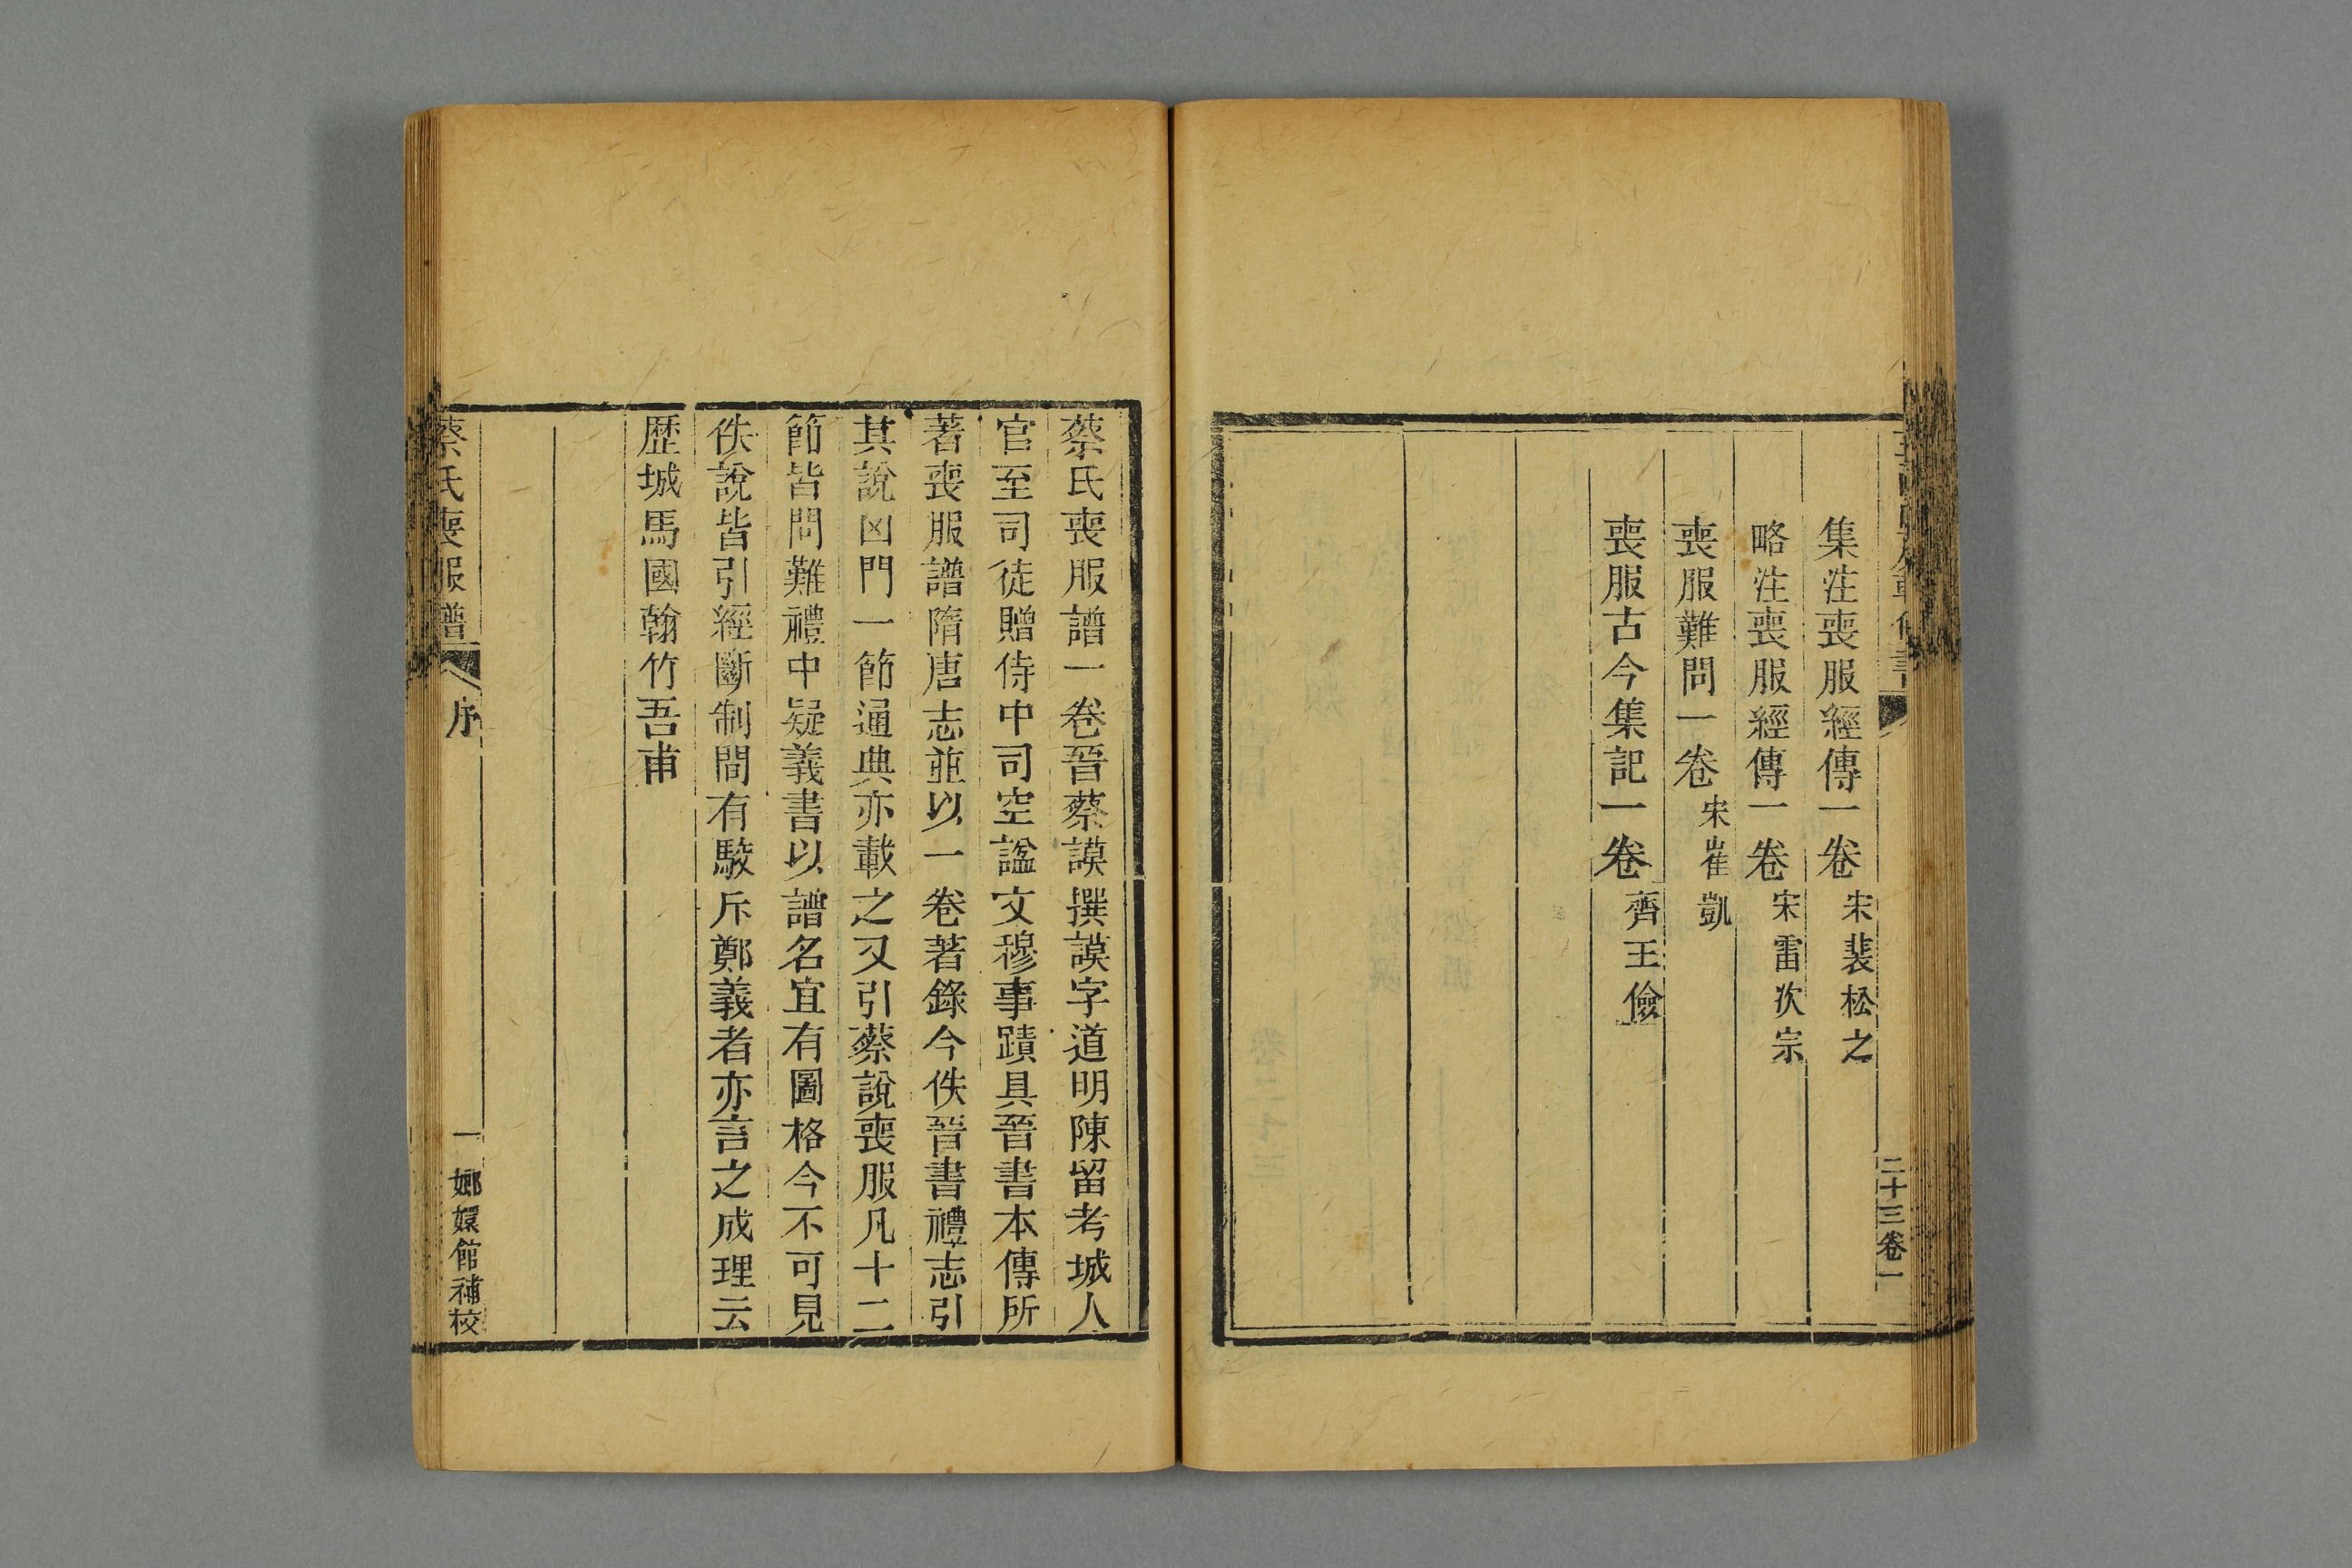 集注喪服經傳一卷宋裴松之
略注喪服經傳一卷宋雷次宗
喪服難問一卷宋崔凱
喪服古今集記一卷齊王儉
二十三卷一
蔡氏喪服譜一卷晉蔡謨撰謨字道明陳留考城人
官至司徒贈侍中司空諡文穆事蹟具晉書本傳所
著喪服譜隋唐志並以一卷著錄今佚晉書禮志引
其說凶門一節通典亦載之又引蔡說喪服凡十二
節皆問難禮中疑義書以譜名宜有圖格今不可見
佚說皆引經斷制間有駮斥鄭義者亦言之成理云
歷城馬國翰竹吾甫
蔡氏喪服譜 序 一 嫏嬛館補校